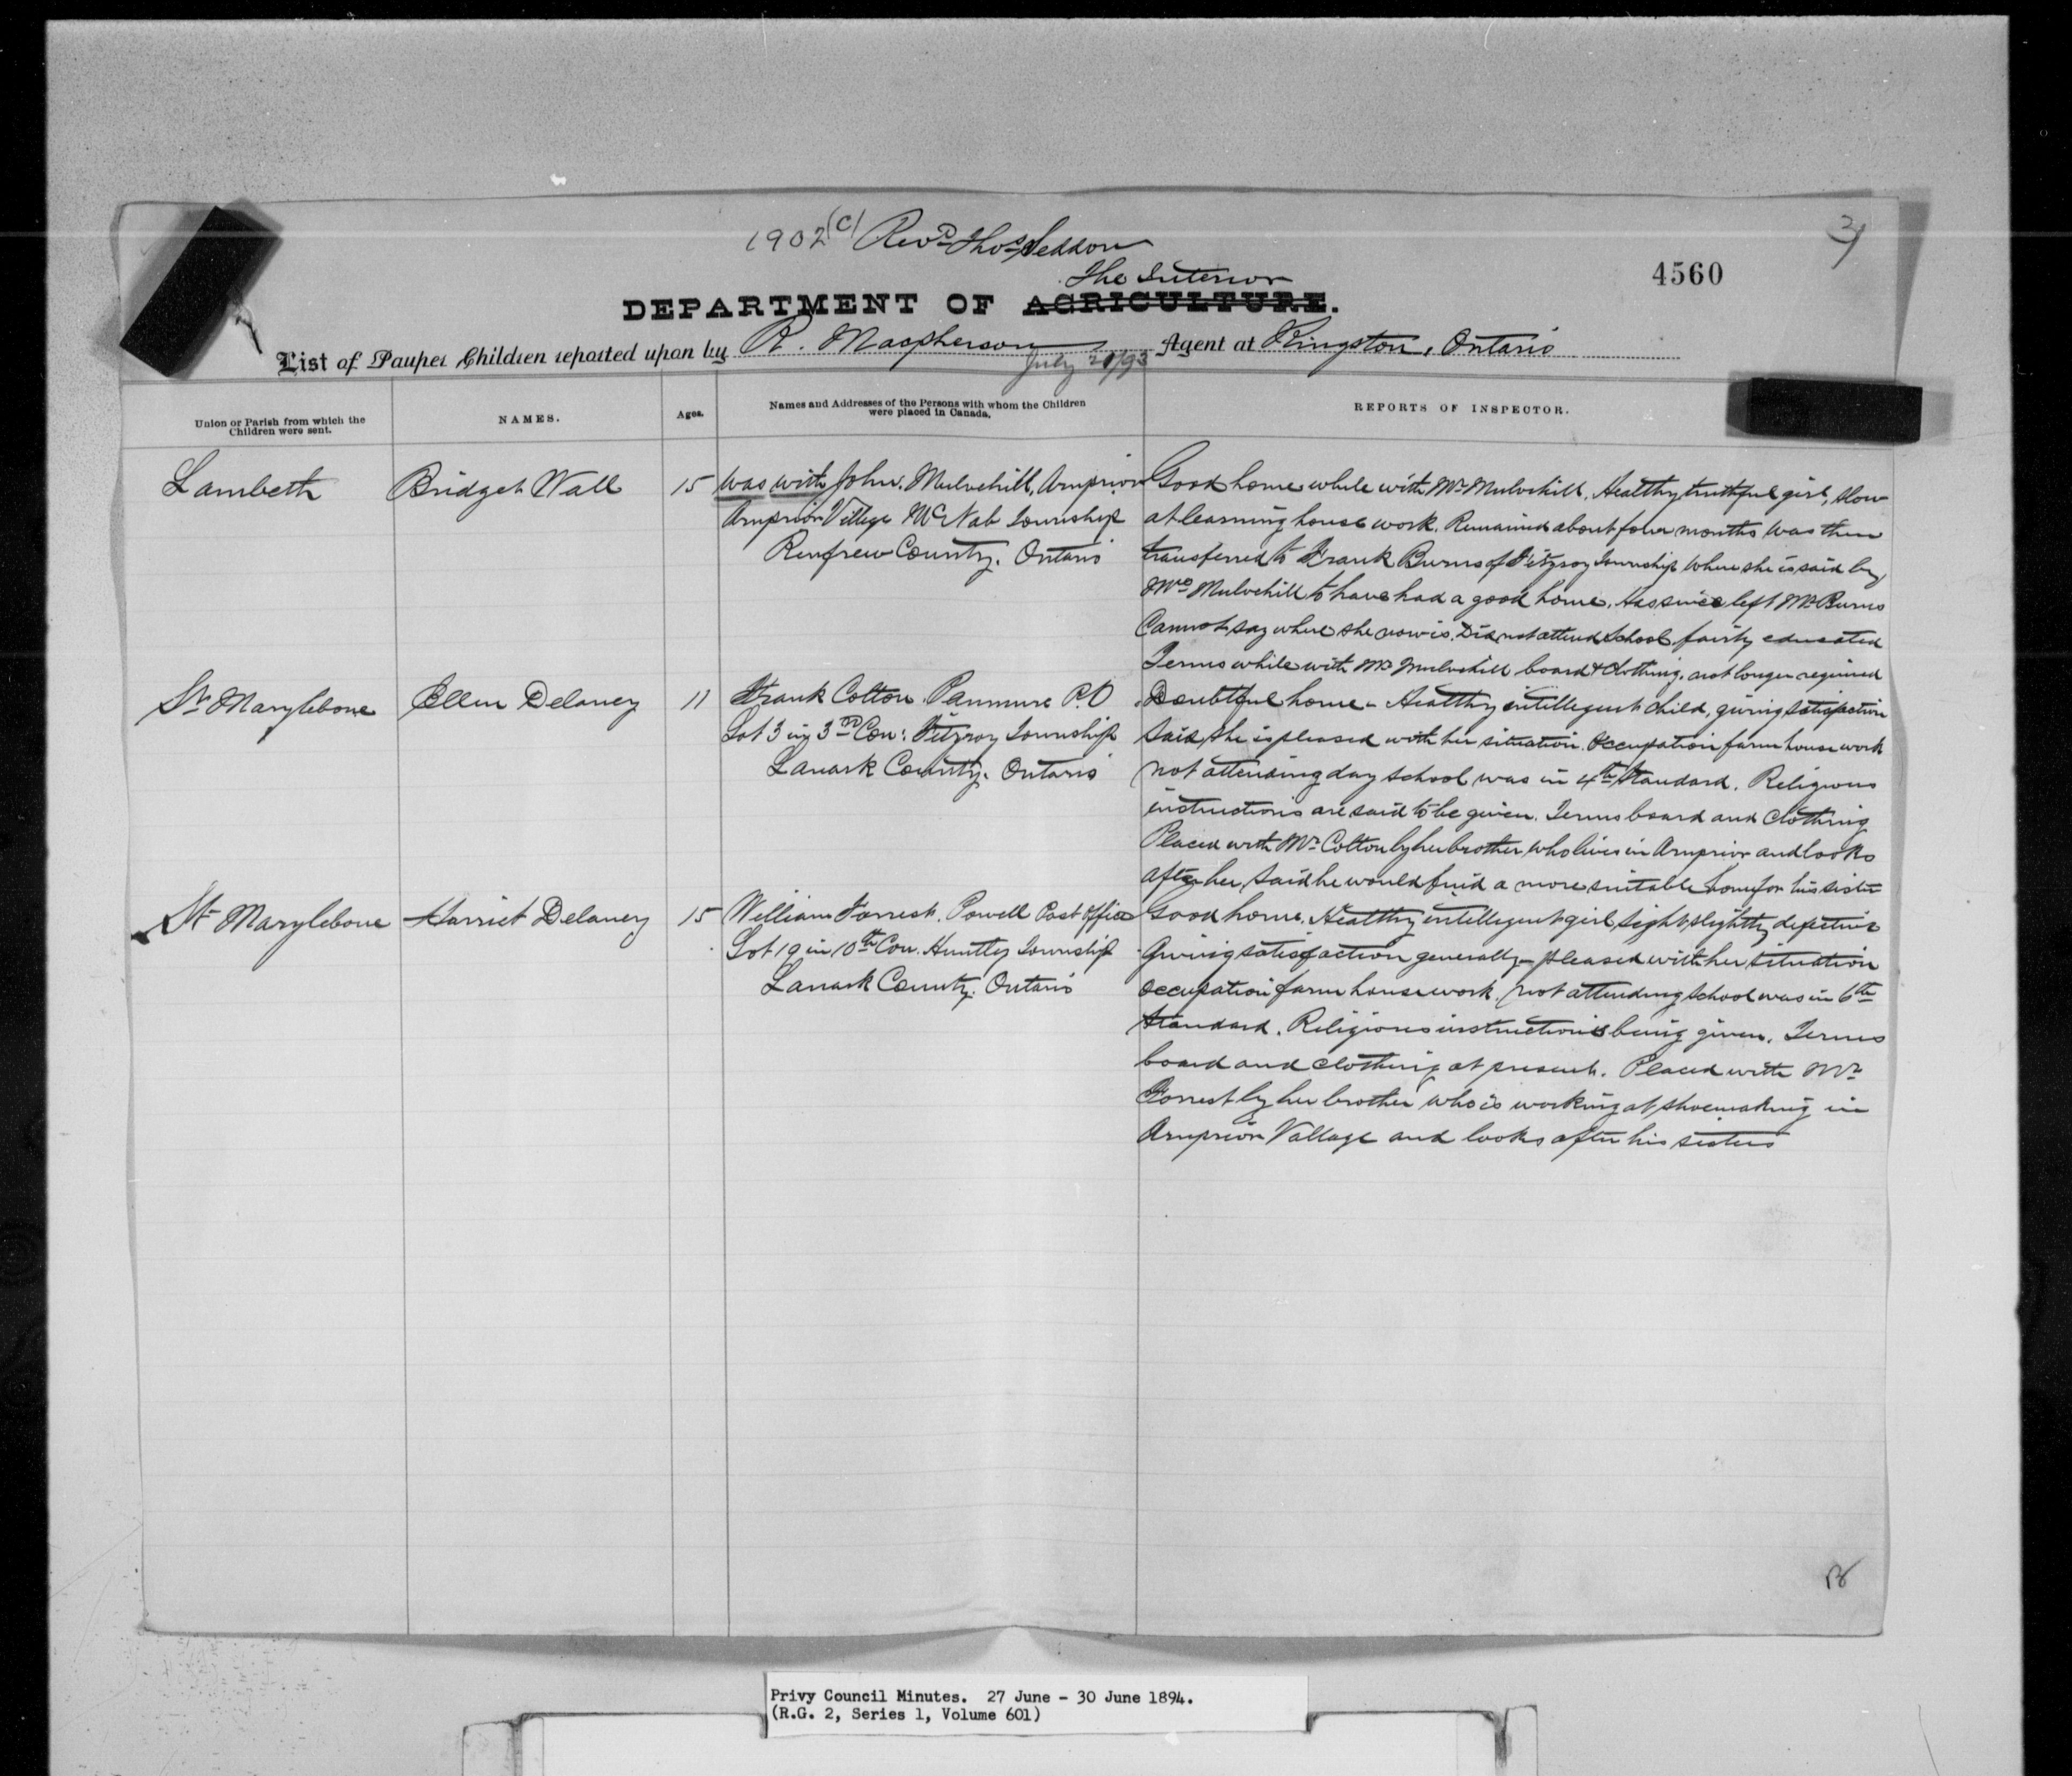 1902 (C) Revd Thos Seddon
3)
4560
The Interior
DEPARTMENT OF AGRICULTURE.
List of Pauper Children reported upon by R. Macpherson Agent at Kingston, Ontario
July 21/93
Union or Parish from which the
Children were sent.
NAMES.
Ages.
Names and Addresses of the Persons with whom the Children
were placed in Canada.
REPORTS OF INSPECTOR.
Lambeth
Bridget Wall
15
was with John Mulvehill, Arnprior
Arnprior Village McNab Township
Renfrew County. Ontario
Good home while with Mr Mulvehill. Healthy truthful girl, slow
at learning house work. Remained about four months was then
transferred to Frank Burns of Fitzroy Township where she is said by
Mrs Mulvehill to have had a good home. Has since left Mr Burns
Cannot say where she now is. Did not attend School fairly educated
Terms while with Mr Mulvehill board & clothing. not longer required
St Marylebone
Ellen Delaney
11
Frank Colton Panmure P.O
Lot 3 in 3rd Con: Fitzroy Township
Lanark County. Ontario
Doubtful home - Healthy intellegent child, giving satisfaction
Said she is pleased with her situation. Occupation farm house work
not attending day school was in 4th Standard. Religious
instructions are said to be given. Terms board and clothing
Placed with Mr Colton by her brother who lives in Arnprior and looks
after her, Said he would find a more suitable home for his sister
St Marylebone
Harriet Delaney
15
William Forrest. Powell Post Office
Lot 19 in 10th Con. Huntley Township
Lanark County. Ontario
Good home. Healthy intellegent girl sight slightly defective
Giving satisfaction generally - pleased with her situation
Occupation farm house work. not attending school was in 6th
Standard. Religious instruction is being given. Terms
board and clothing at present. Placed with Mr
Forrest by her brother who is working at shoemaking in
Arnprior Vallage and looks after his sisters
Privy Council Minutes. 27 June - 30 June 1894.
(R.G. 2, Series 1, Volume 601)